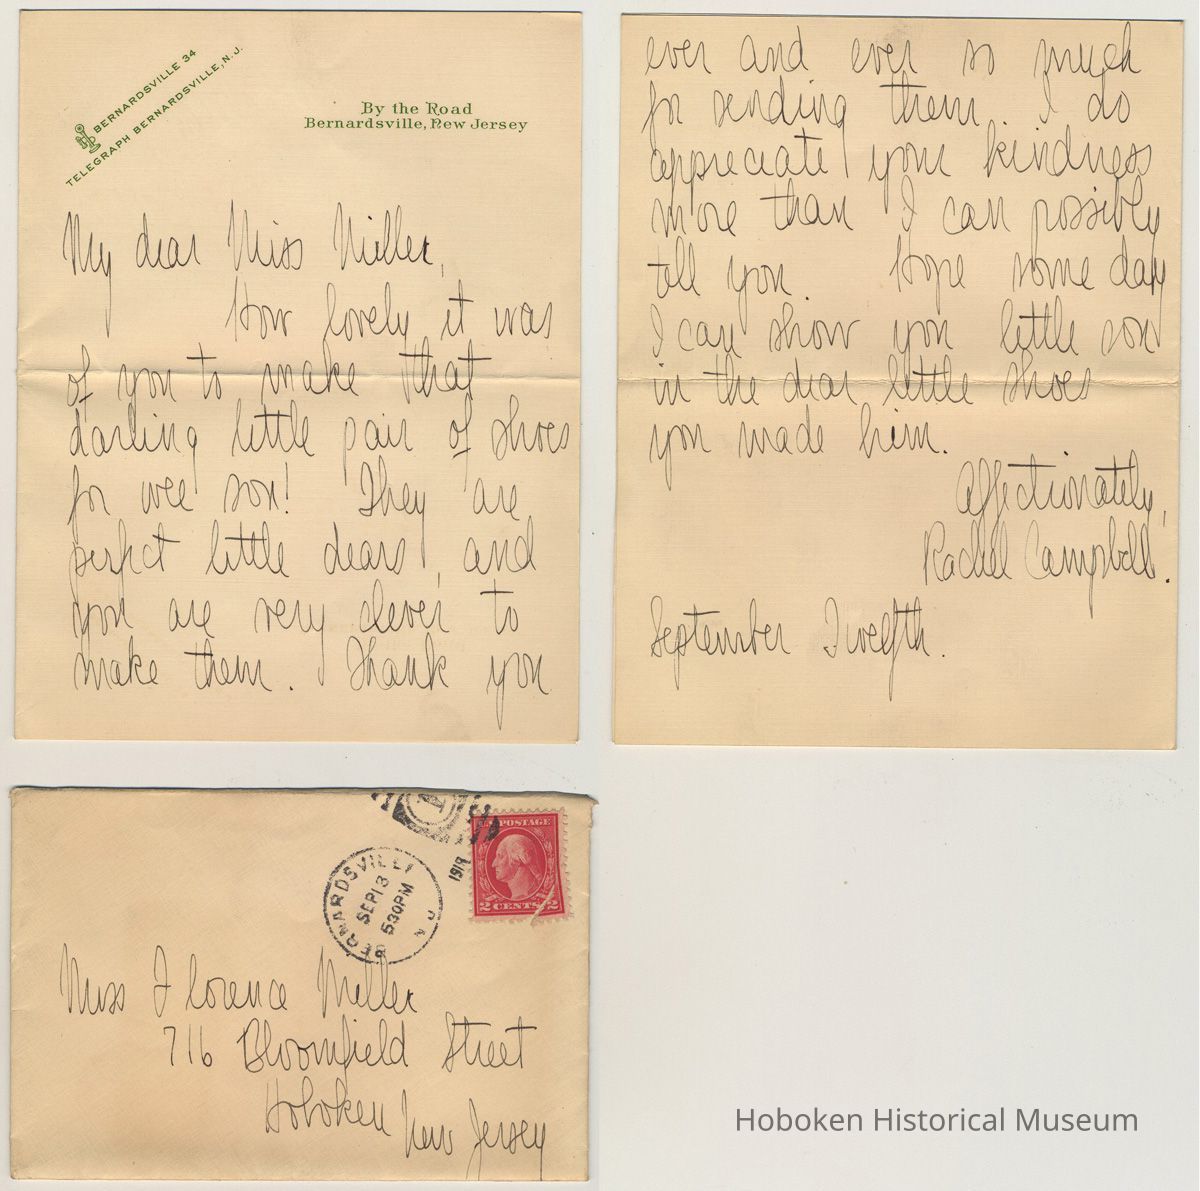 BERNARDSVILLE 34
TELEGRAPH BERNARDSVILLE, N.J.
By the Road
Bernardsville, New Jersey
My dear Miss Miller,
How lovely it was
of you to make that
darling little pair of shoes
for wee son! They are
perfect little dears, and
you are very clever to
make them. Thank you
ever and ever so much
for sending them. I do
appreciate your kindness
more than I can possibly
tell you. Hope some day
I can show you little son
in the dear little shoes
you made him.
Affectionately,
Rachel Campbell.
September Twelfth.
U.S. POSTAGE
2 CENTS 2
BERNARDSVILLE
SEP 13
5 30 PM
N.J.
1919
Miss Florence Miller
716 Bloomfield Street
Hoboken New Jersey
Hoboken Historical Museum